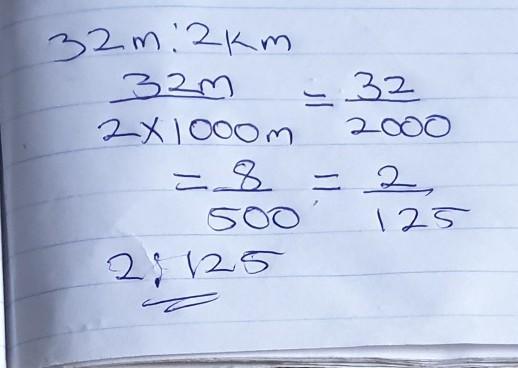 32m:2km
32m/2×1000m = 32/2000
= 8/500 = 2/125
2:125